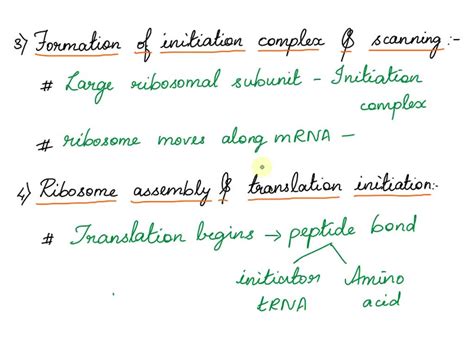 3) Formation of initiation complex & scanning :-
# Large ribosomal subunit - Initiation
complex
# ribosome moves along mRNA -
4) Ribosome assembly & translation initiation:-
# Translation begins → peptide bond
initiator Amino
tRNA acid